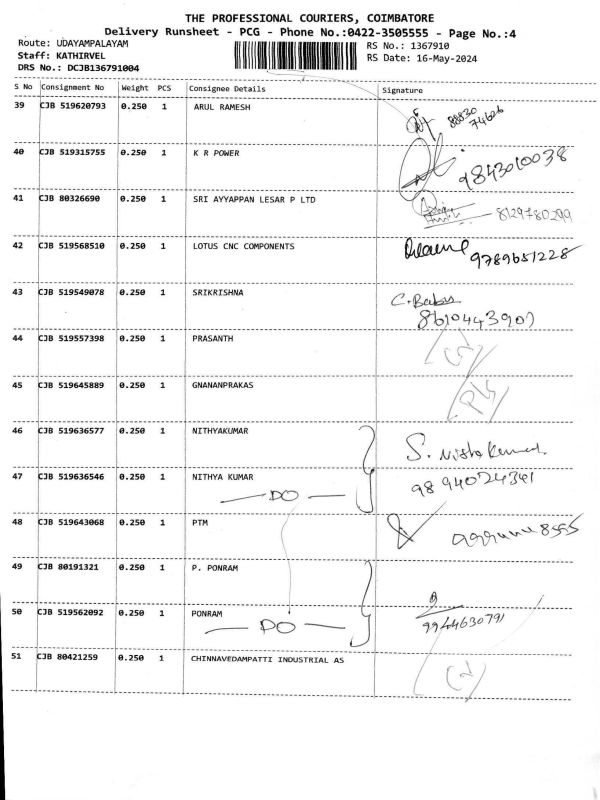 THE PROFESSIONAL COURIERS, COIMBATORE
Delivery Runsheet - PCG - Phone No.:0422-3505555 - Page No.:4
Route: UDAYAMPALAYAM
Staff: KATHIRVEL
DRS No.: DCJB136791004
RS No.: 1367910
RS Date: 16-May-2024
S No Consignment No Weight PCS Consignee Details Signature
39 CJB 519620793 0.250 1 ARUL RAMESH 88830
74626
40 CJB 519315755 0.250 1 K R POWER 9843010038
41 CJB 80326690 0.250 1 SRI AYYAPPAN LESAR P LTD 8129780299
42 CJB 519568510 0.250 1 LOTUS CNC COMPONENTS 9789651228
43 CJB 519549078 0.250 1 SRIKRISHNA C. Babu
8610443907
44 CJB 519557398 0.250 1 PRASANTH
45 CJB 519645889 0.250 1 GNANANPRAKAS
46 CJB 519636577 0.250 1 NITHYAKUMAR
47 CJB 519636546 0.250 1 NITHYA KUMAR 9894024341
DO
48 CJB 519643068 0.250 1 PTM
49 CJB 80191321 0.250 1 P. PONRAM
50 CJB 519562092 0.250 1 PONRAM 9944630791
DO
51 CJB 80421259 0.250 1 CHINNAVEDAMPATTI INDUSTRIAL AS